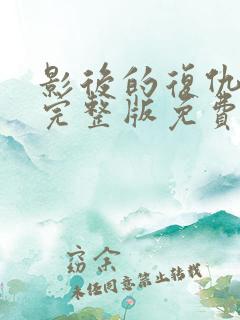 影后的復仇
完整版免費
窈余
未经同意禁止转载